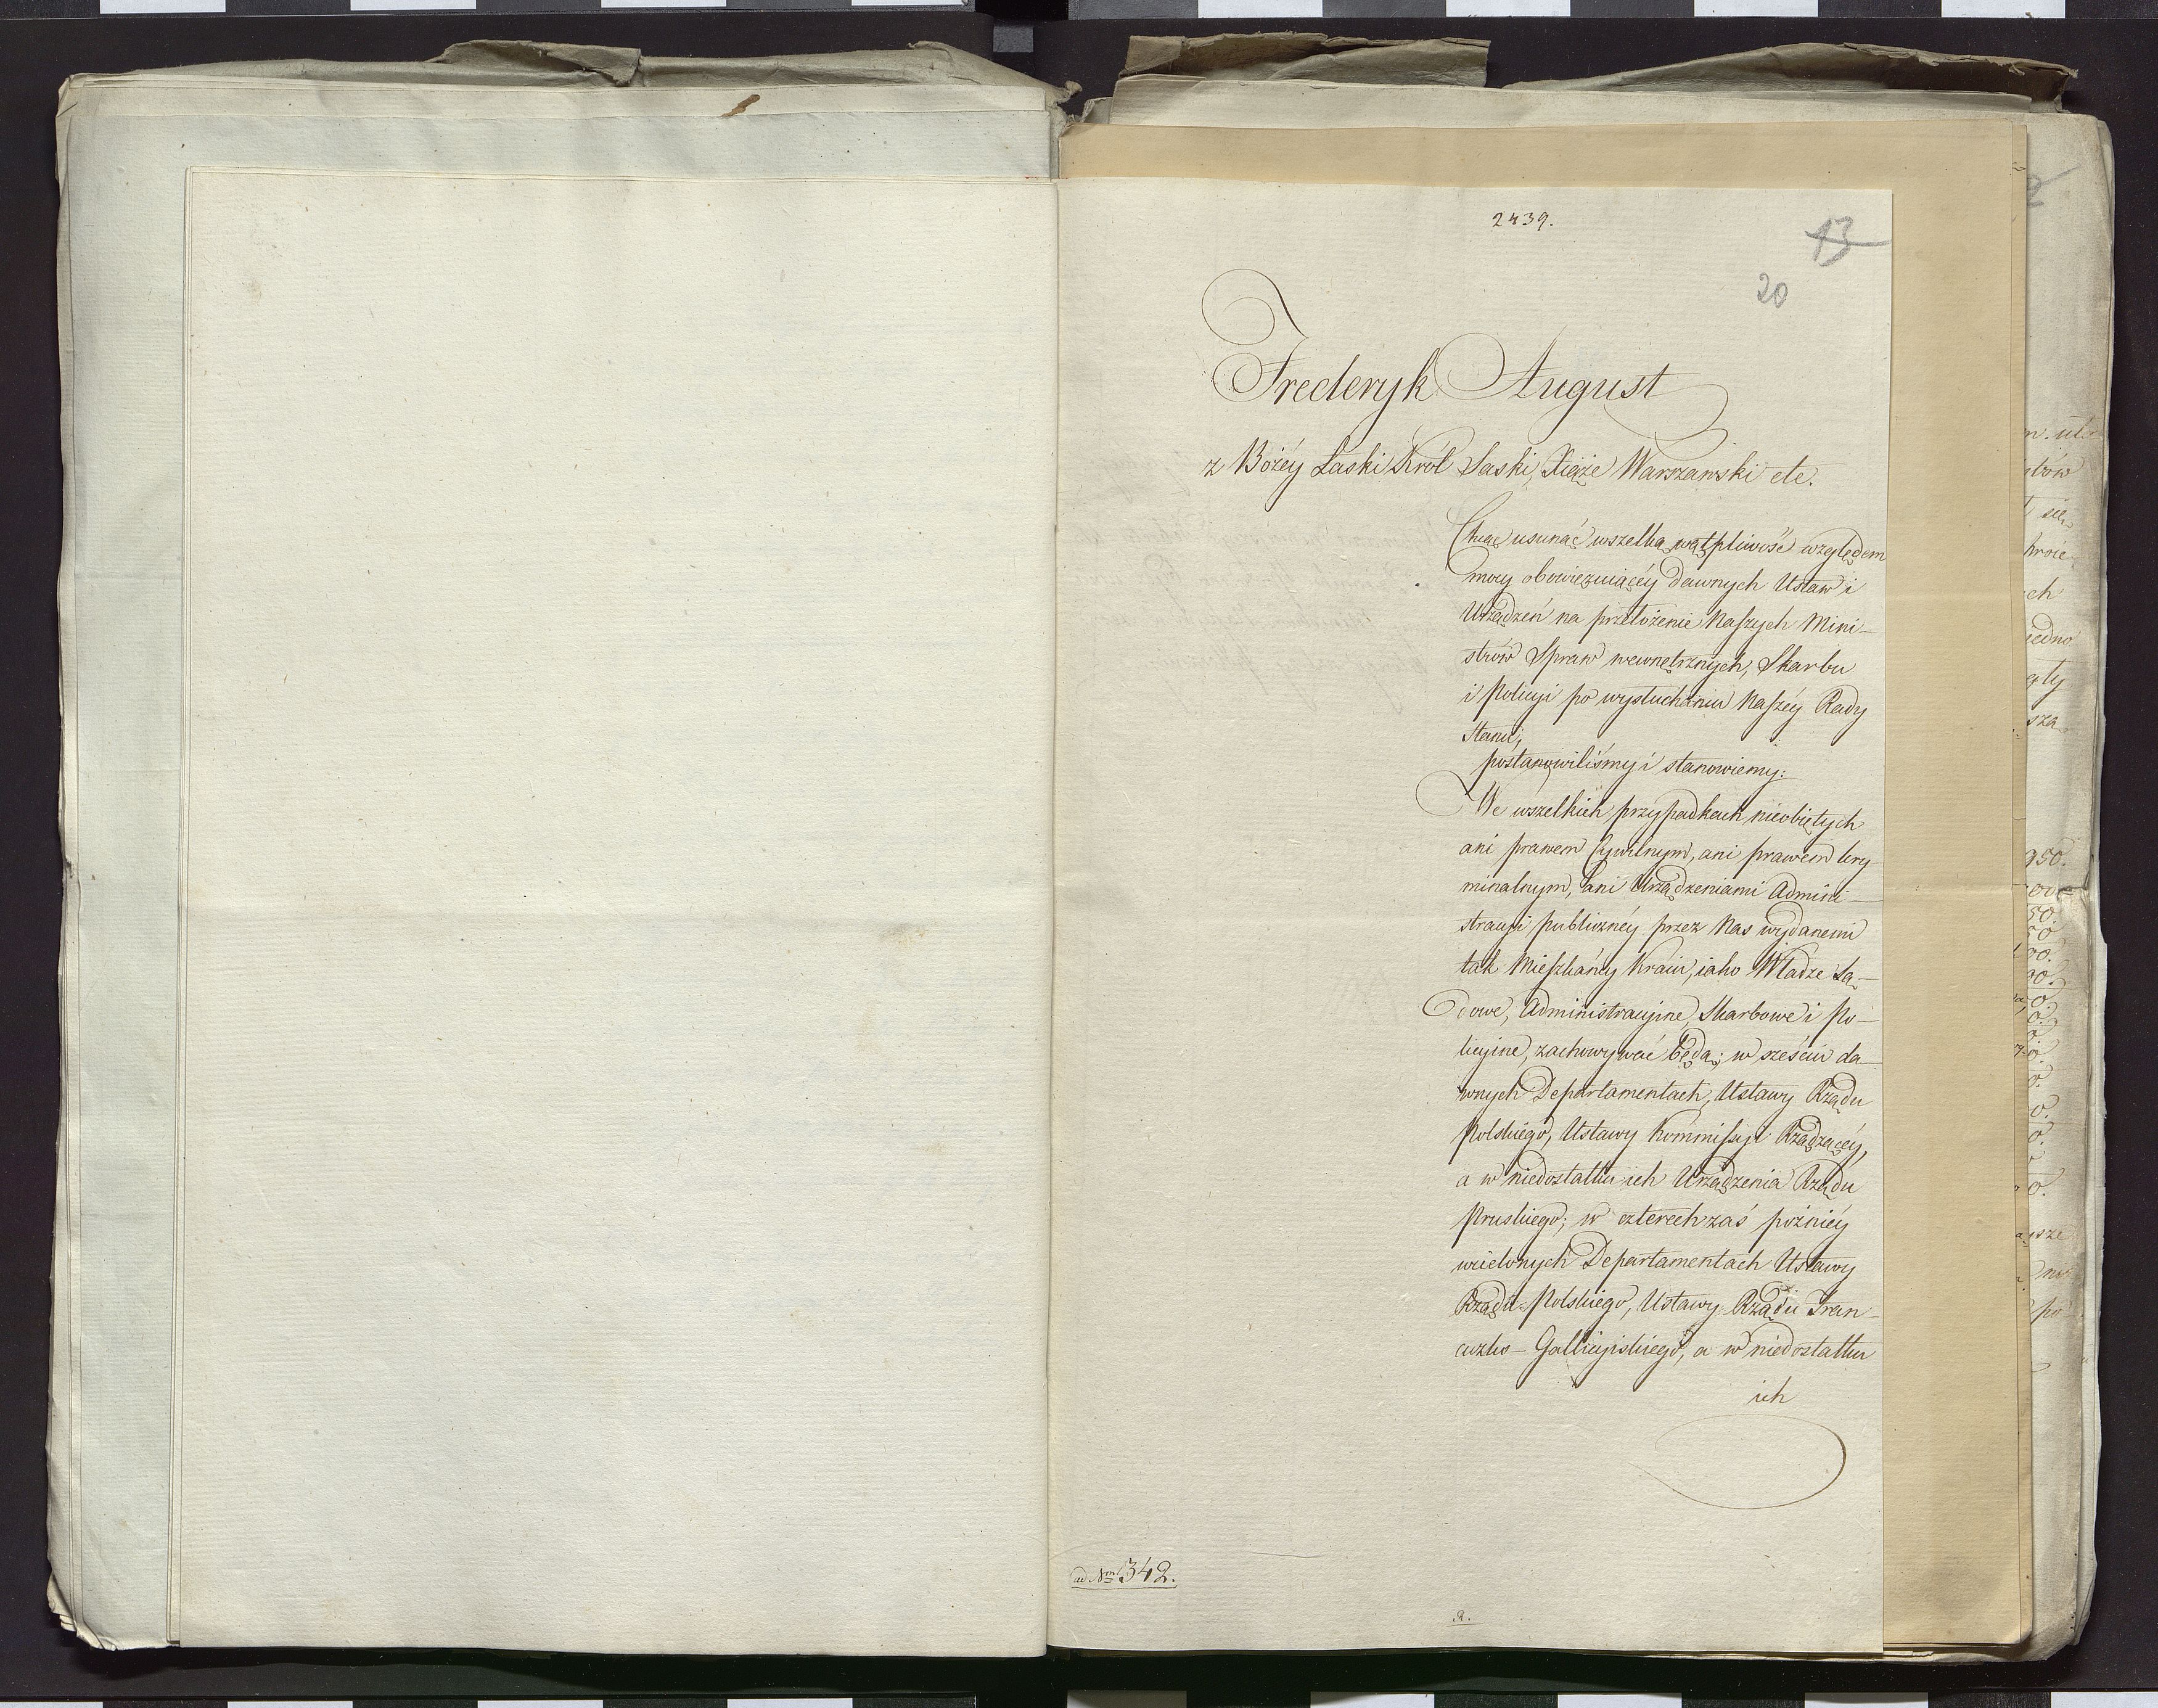 2439.
13
20
Frederyk August
z Bożéy Łaski Król Saski, Xiąże Warszawski etc.
Chcąc usunąć wszelką wątpliwość względem
mocy obowięzuiącéy dawnych Ustaw i
Urządzeń na przełożenie Naszych Mini-
strów Spraw wewnętrznych, Skarbu
i Policyi po wysłuchaniu Naszéy Rady
Stanu,
postanowiliśmy i stanowiemy:
We wszelkich przypadkach nieobiętych
ani prawem Cywilnym, ani prawem kry-
minalnym, ani Urządzeniami Admini-
stracyi publicznéy przez Nas wydanemi
tak Mieszkańcy Kraiu, iako Władze Są-
dowe, Administracyine, Skarbowe i Po-
licyine, zachowywać będą; w sześciu da-
wnych Departamentach, Ustawy Rządu
Polskiego, Ustawy Kommissyi Rządzącéy,
a w niedostatku ich Urządzenia Rządu
Pruskiego; w czterech zaś poźniéy
wcielonych Departamentach Ustawy
Rządu Polskiego, Ustawy Rządu Fran-
cuzko-Gallicyiskiego, a w niedostatku
ich
ad Nrm 342.